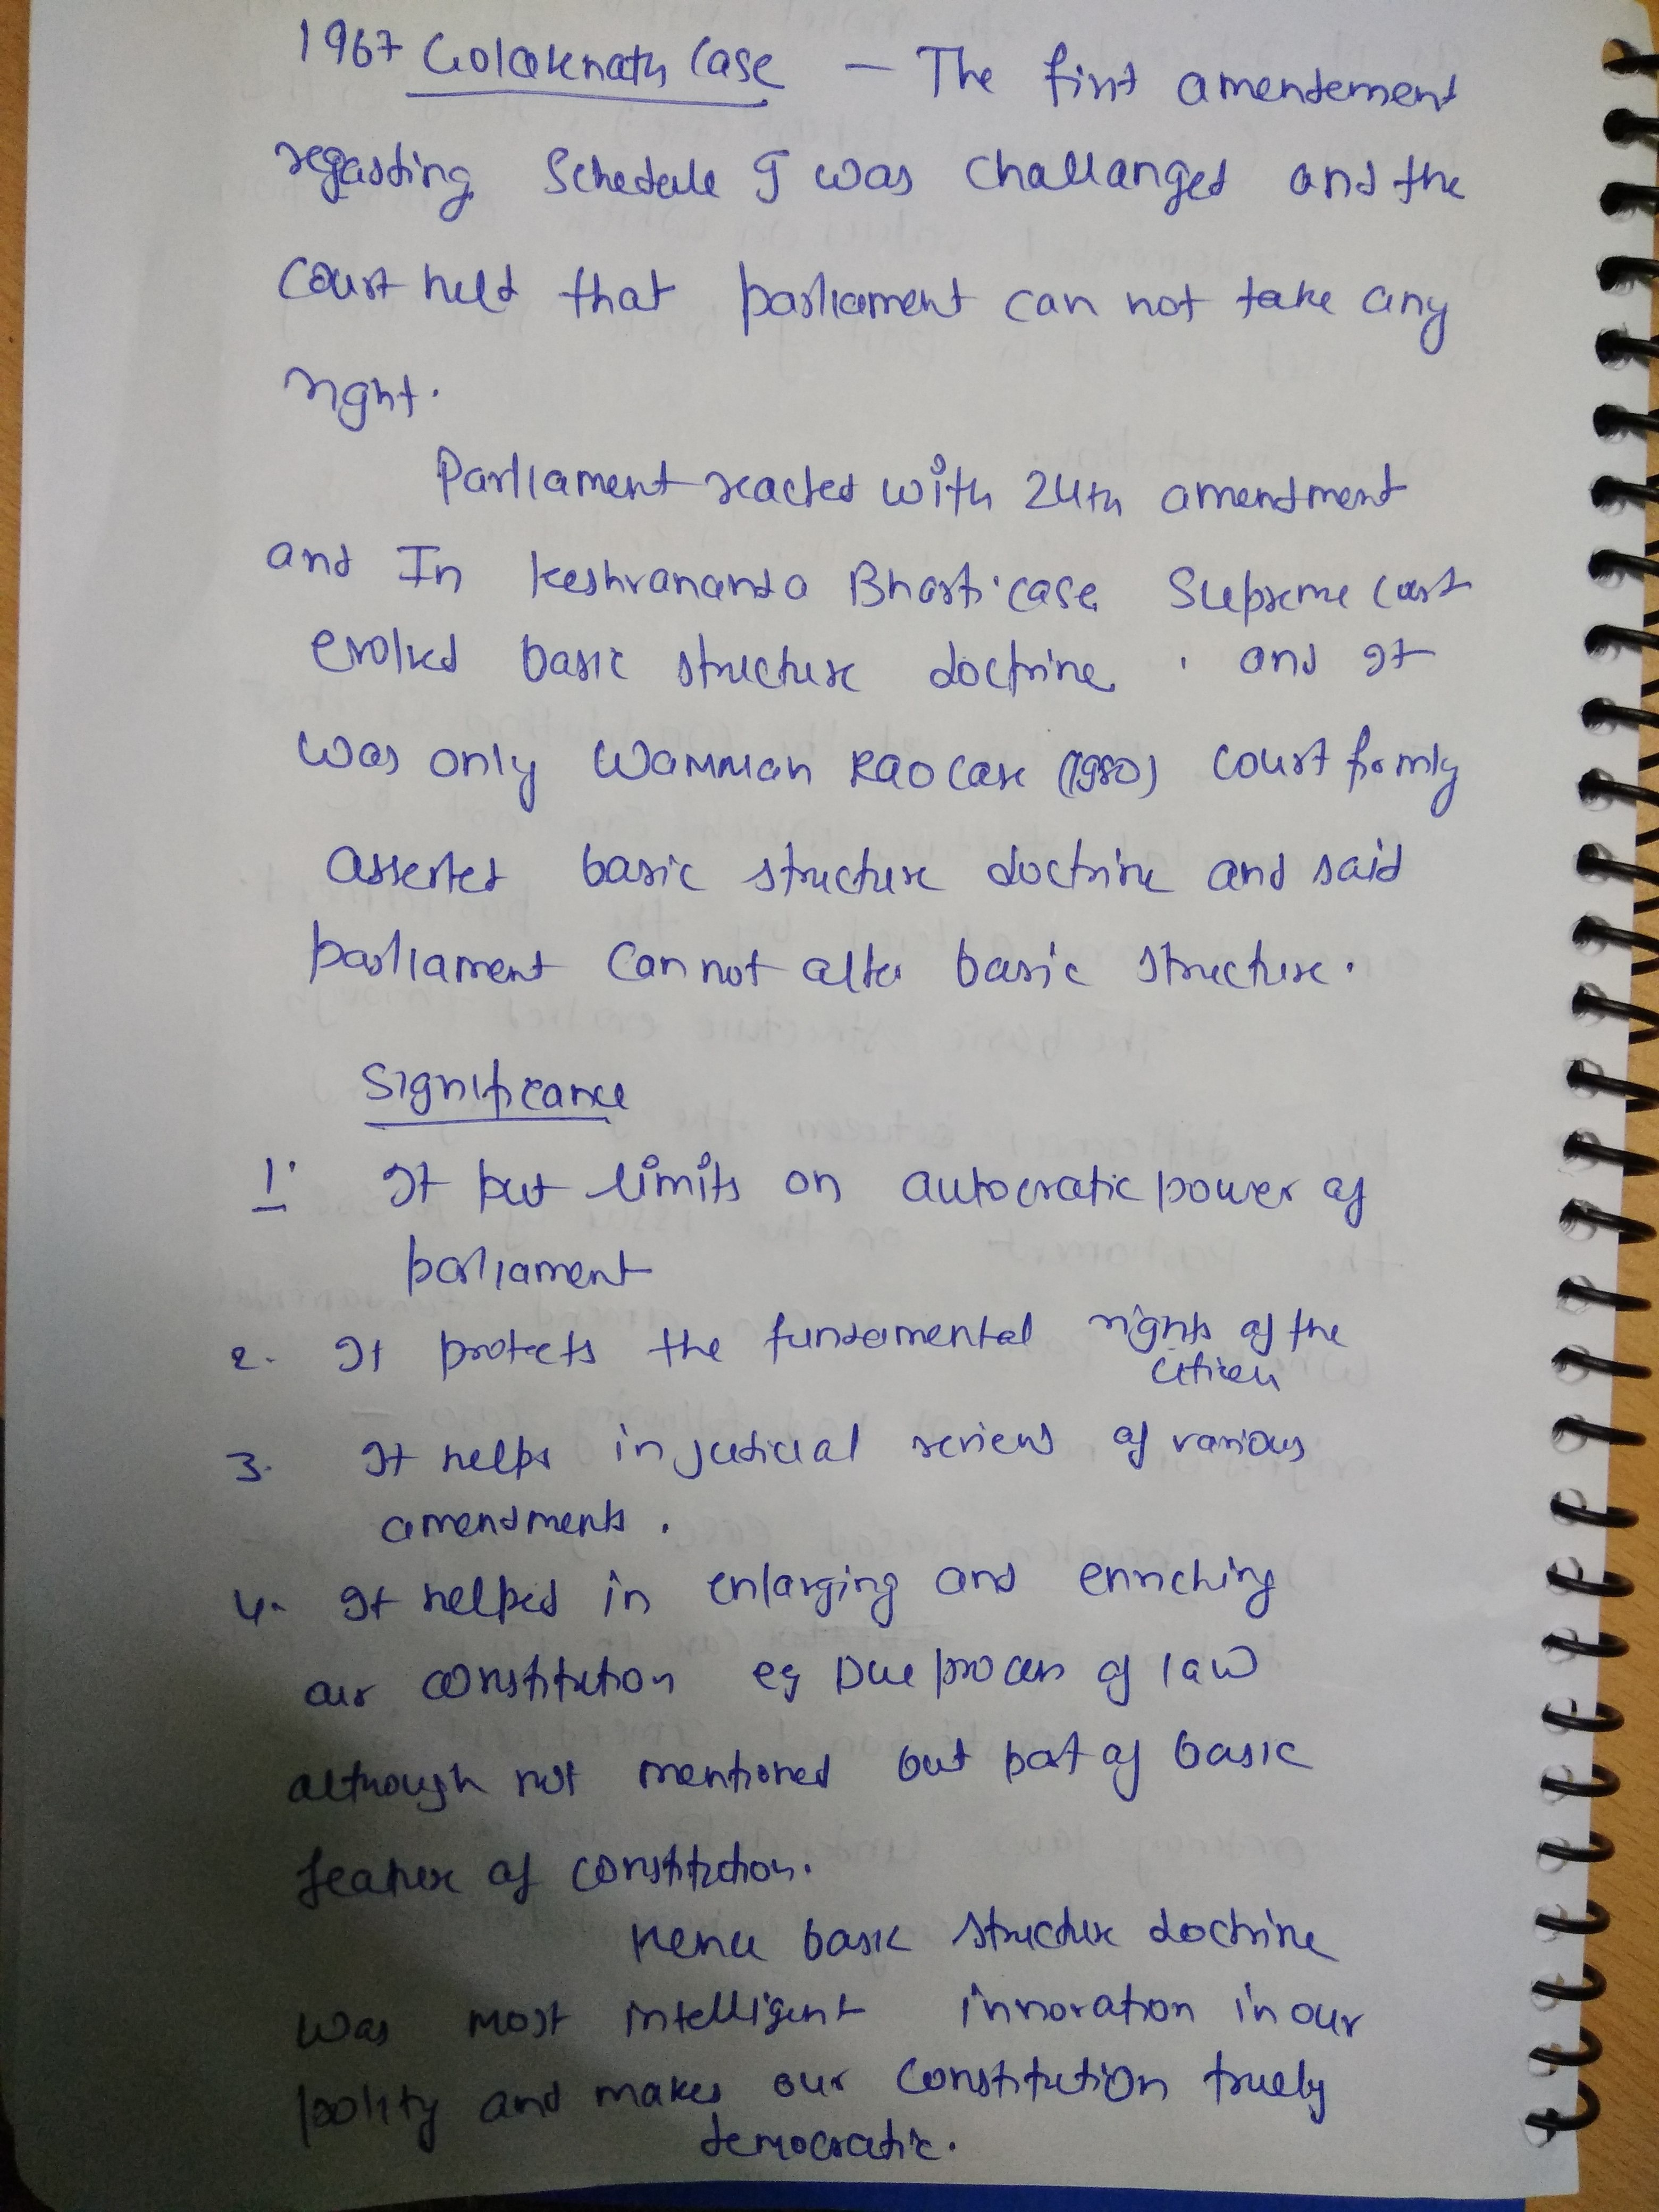 1967 Golaknath Case — The first amendement
regarding Schedule 9 was challanged and the
Court held that parliament can not take any
right.
Parliament reacted with 24th amendment
and In Keshvananda Bharti case Supreme Court
evolved basic structure doctrine. and It
was only Wamman Rao case (1980) court firmly
asserted basic structure doctrine and said
parliament can not alter basic structure.
Significance
1. It put limits on autocratic power of
parliament
2. It protects the fundamental rights of the
citizen
3. It helps in judicial review of various
amendments.
4. It helped in enlarging and enriching
our constitution eg Due process of law
although not mentioned but part of basic
feature of constitution.
Hence basic structure doctrine
was most intelligent innovation in our
polity and makes our Constitution truely
democratic.